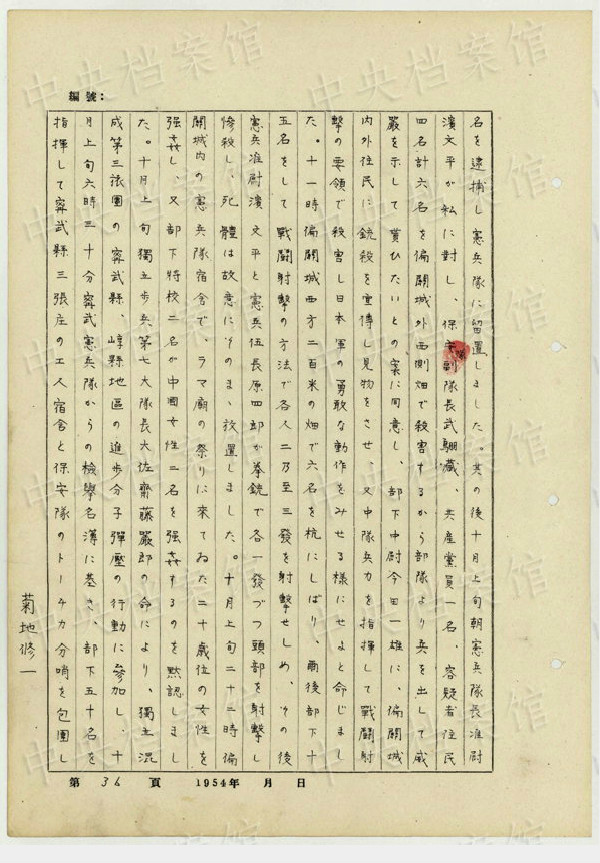 編號：
名を逮捕し憲兵隊に留置しました。其の後十月上旬朝憲兵隊長准尉
濱文平が私に対し、保安副隊長武騆藏、共産黨員一名、容疑者住民
四名計六名を偏關城外西側畑で殺害するから部隊より兵を出して威
嚴を示して貰ひたいとの案に同意し、部下中尉今田一雄に、偏關城
内外住民に銃殺を宣傳し見物をさせ、又中隊兵力を指揮して戰闘射
擊の要領で殺害し日本軍の勇敢な動作をみせる様にせよと命じまし
た。十一時偏關城西方二百米の畑で六名を杭にしばり、爾後部下十
五名をして戰闘射擊の方法で各人二乃至三發を射擊せしめ、その後
憲兵准尉濱文平と憲兵伍長原四郎が拳銃で各一發づつ頭部を射擊し
慘殺し、死體は故意にそのまゝ放置しました。十月上旬二十三時偏
關城内の憲兵隊宿舎で、ラマ廟の祭りに來てゐた二十歳位の女性を
强姦し、又部下将校二名が中國女性二名を强姦するのを黙認しまし
た。十月上旬獨立歩兵第七大隊長大佐齋藤嚴郎の命により、獨立混
成第三旅團の寗武縣、崞縣地區の進歩分子彈壓の行動に參加し、十
月上旬六時三十分寗武憲兵隊からの檢擧名薄に基き、部下五十名を
指揮して寗武縣三張庄の工人宿舎と保安隊のトーチカ分哨を包圍し
菊地修一
第 34 頁 1954年 月 日
中央档案馆